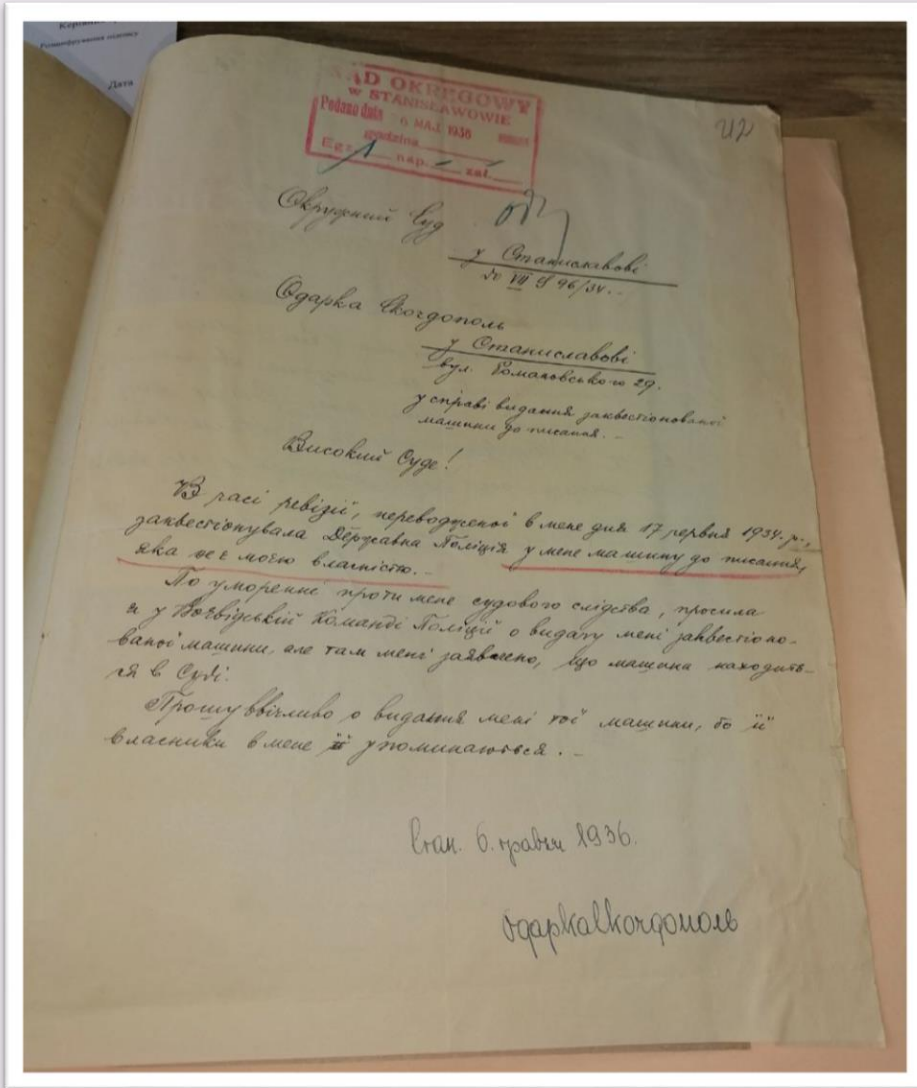 Розшифрування підпису
Дата
SĄD OKRĘGOWY
W STANISŁAWOWIE
Podano dnia 6 MAJ. 1936
godzina
Egz. 1 nap. zał.
Окружний Суд
у Станиславові
до VII S 96/34.-
Одарка Скогдополь
у Станиславові
вул. Романовського 29.
у справі видання заквестіонованої
машини до писання.-
Високий Суде!
В часі ревізії, переводженої в мене дня 17 червня 1934. р.,
заквестіонувала Державна Поліція у мене машину до писання,
яка не є моєю власністю.-
По уморенні проти мене судового слідства, просила
я у Воєвідській Команді Поліції о видачу мені заквестіоно-
ваної машини, але там мені заявлено, що машина находить-
ся в Суді.
Прошу ввічливо о видання мені тої машини, бо її
власники в мене її упоминаються.-
Стан. 6. травня 1936.
Одарка Скогдополь